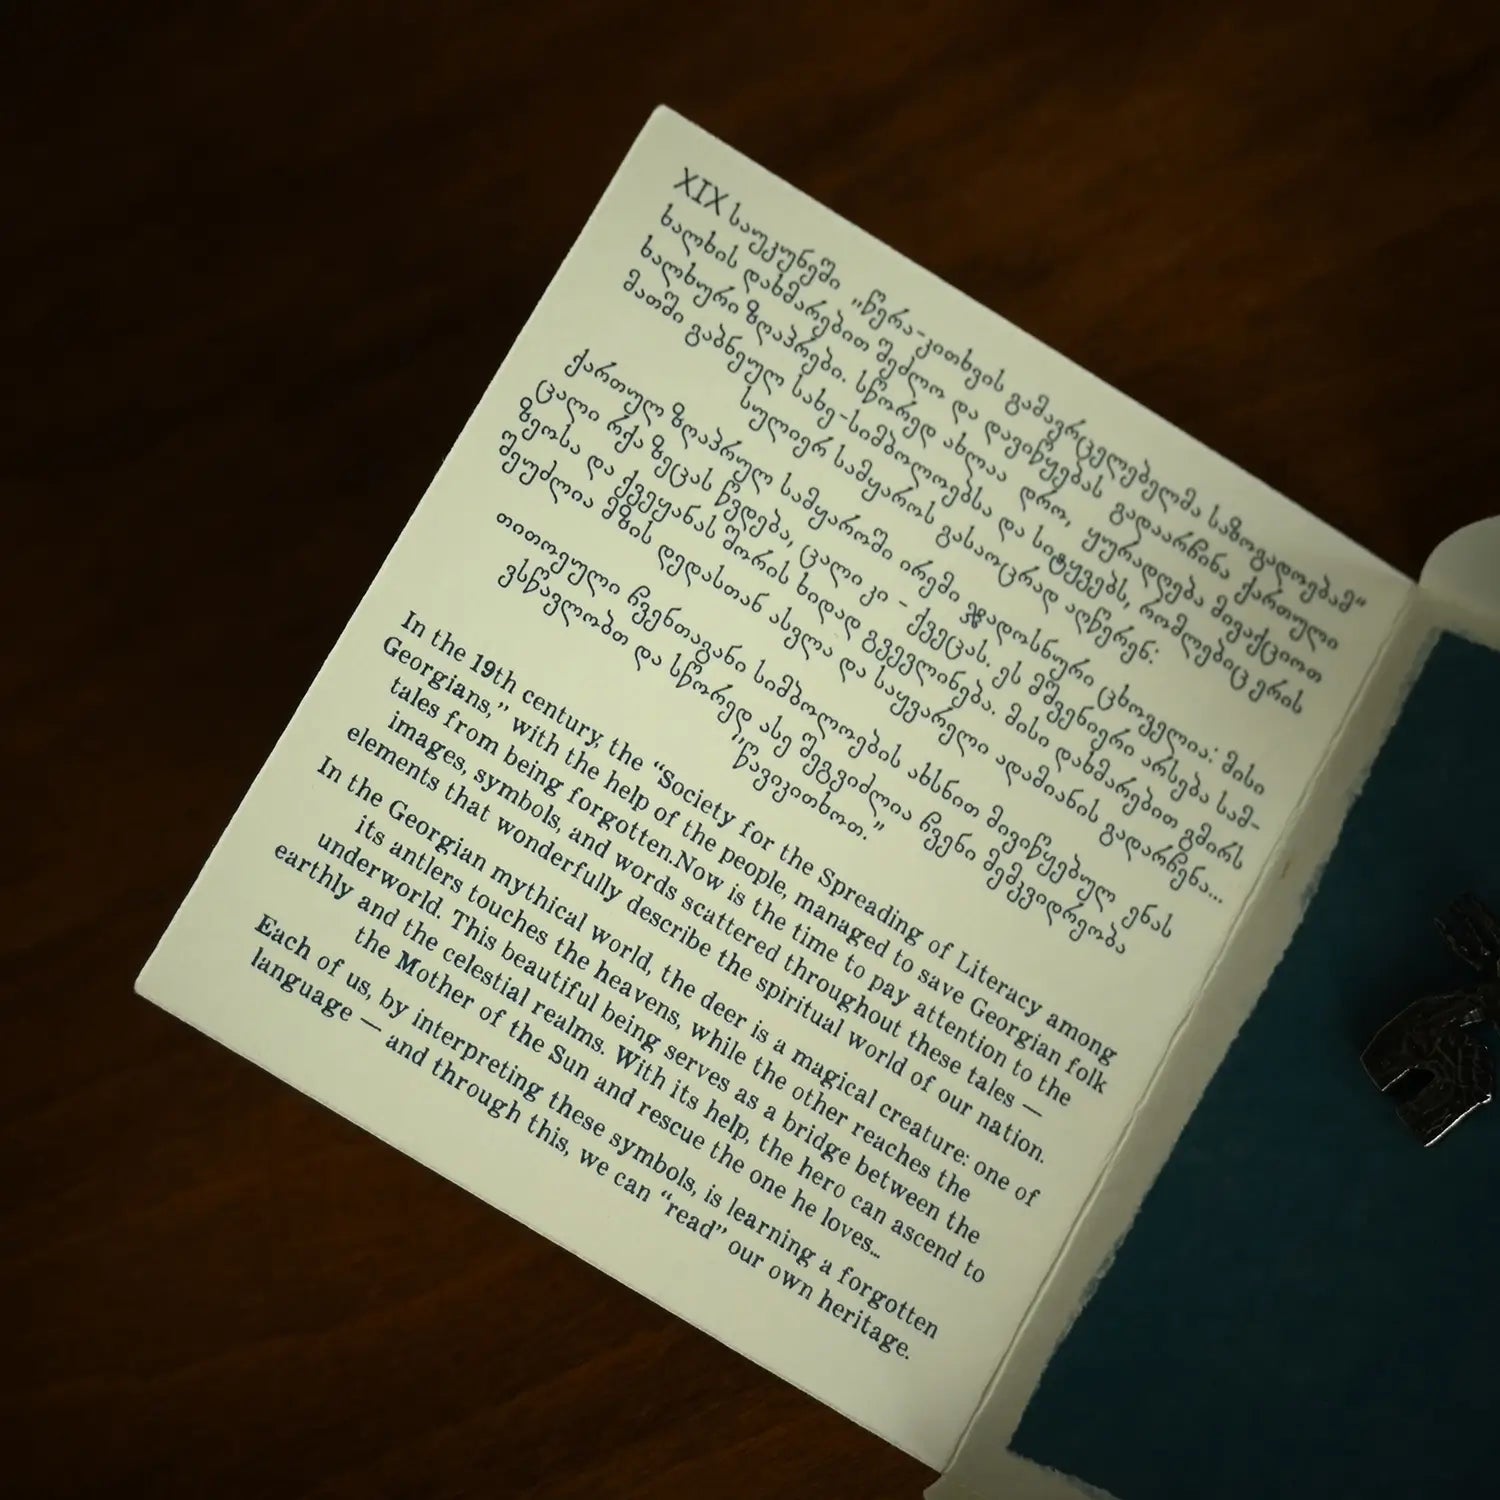 XIX საუკუნეში "წერა-კითხვის გამავრცელებელმა საზოგადოებამ"
ხალხის დახმარებით შეძლო და დავიწყებას გადაარჩინა ქართული
ხალხური ზღაპრები. სწორედ ახლაა დრო, ყურადღება მივაქციოთ
მათში გაბნეულ სახე-სიმბოლოებსა და სიტყვებს, რომლებიც ერის
სულიერ სამყაროს გასაოცრად აღწერენ:
ქართულ ზღაპრულ სამყაროში ირემი ჯადოსნური ცხოველია: მისი
ცალი რქა ზეცას წვდება, ცალი კი - ქვეცას. ეს მშვენიერი არსება სამ-
ზეოსა და ქვეყანას შორის ხიდად გვევლინება. მისი დახმარებით გმირს
შეუძლია მზის დედასთან ასვლა და საყვარელი ადამიანის გადარჩენა...
თითოეული ჩვენთაგანი სიმბოლოების ახსნით მივიწყებულ ენას
ვსწავლობთ და სწორედ ასე შეგვიძლია ჩვენი მემკვიდრეობა
"წავიკითხოთ."
In the 19th century, the “Society for the Spreading of Literacy among
Georgians,” with the help of the people, managed to save Georgian folk
tales from being forgotten.Now is the time to pay attention to the
images, symbols, and words scattered throughout these tales —
elements that wonderfully describe the spiritual world of our nation.
In the Georgian mythical world, the deer is a magical creature: one of
its antlers touches the heavens, while the other reaches the
underworld. This beautiful being serves as a bridge between the
earthly and the celestial realms. With its help, the hero can ascend to
the Mother of the Sun and rescue the one he loves...
Each of us, by interpreting these symbols, is learning a forgotten
language — and through this, we can “read” our own heritage.